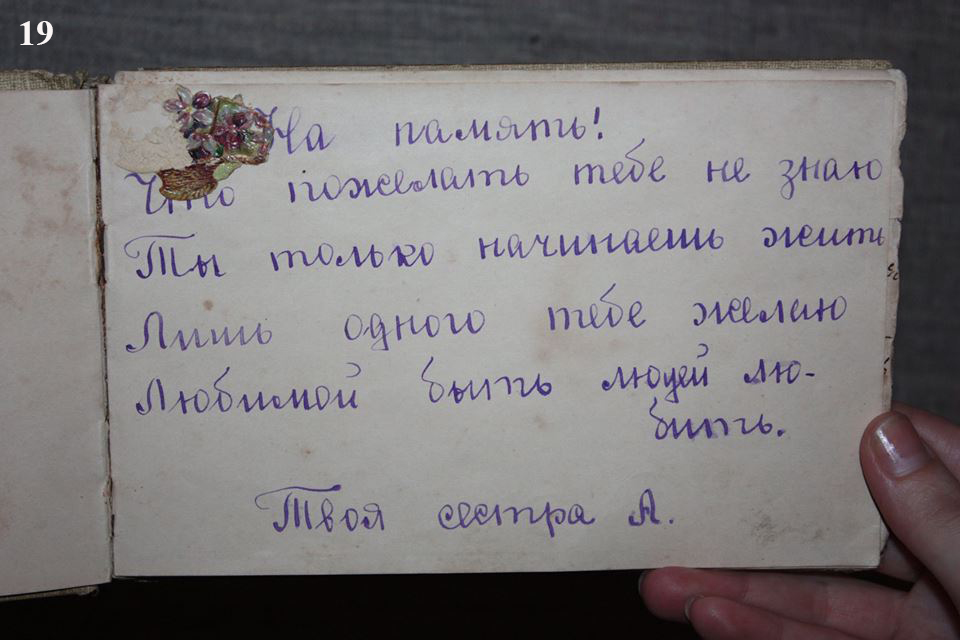 19
На память!
Что пожелать тебе не знаю
Ты только начинаешь жить
Лишь одного тебе желаю
Любимой быть людей лю-
бить.
Твоя сестра А.